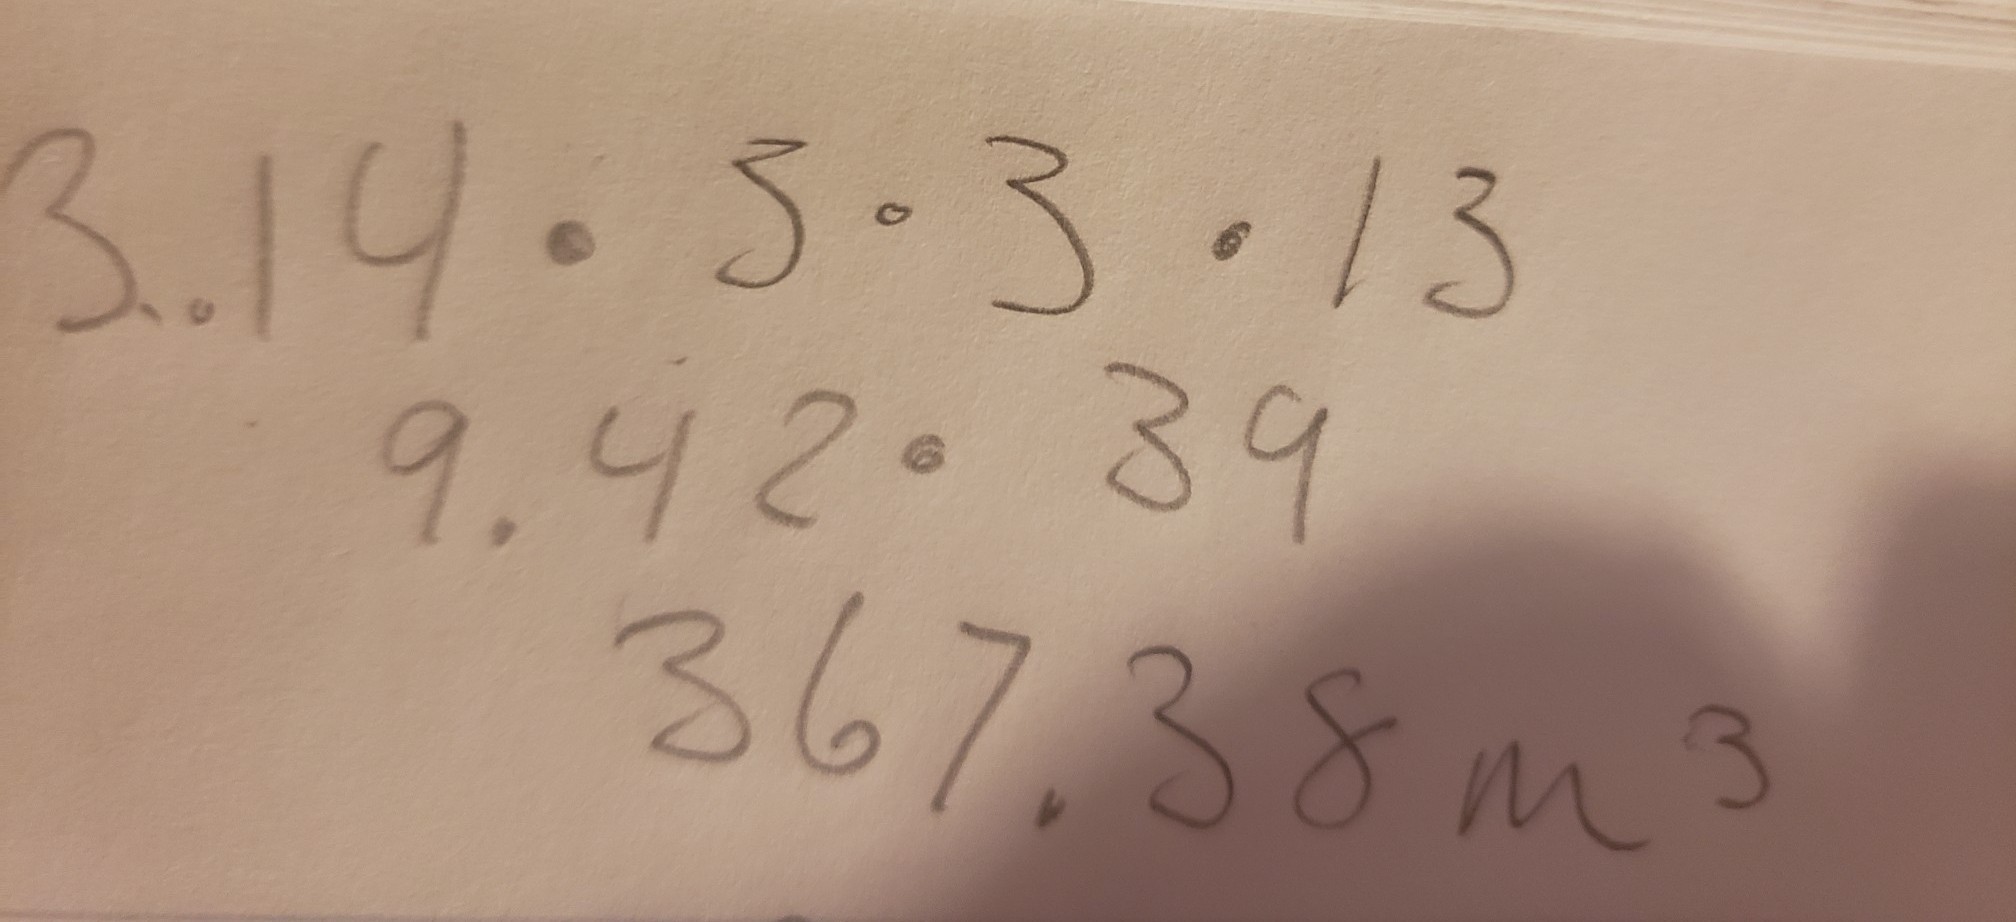 3.14 • 3 • 3 • 13
9.42 • 39
367.38 m³